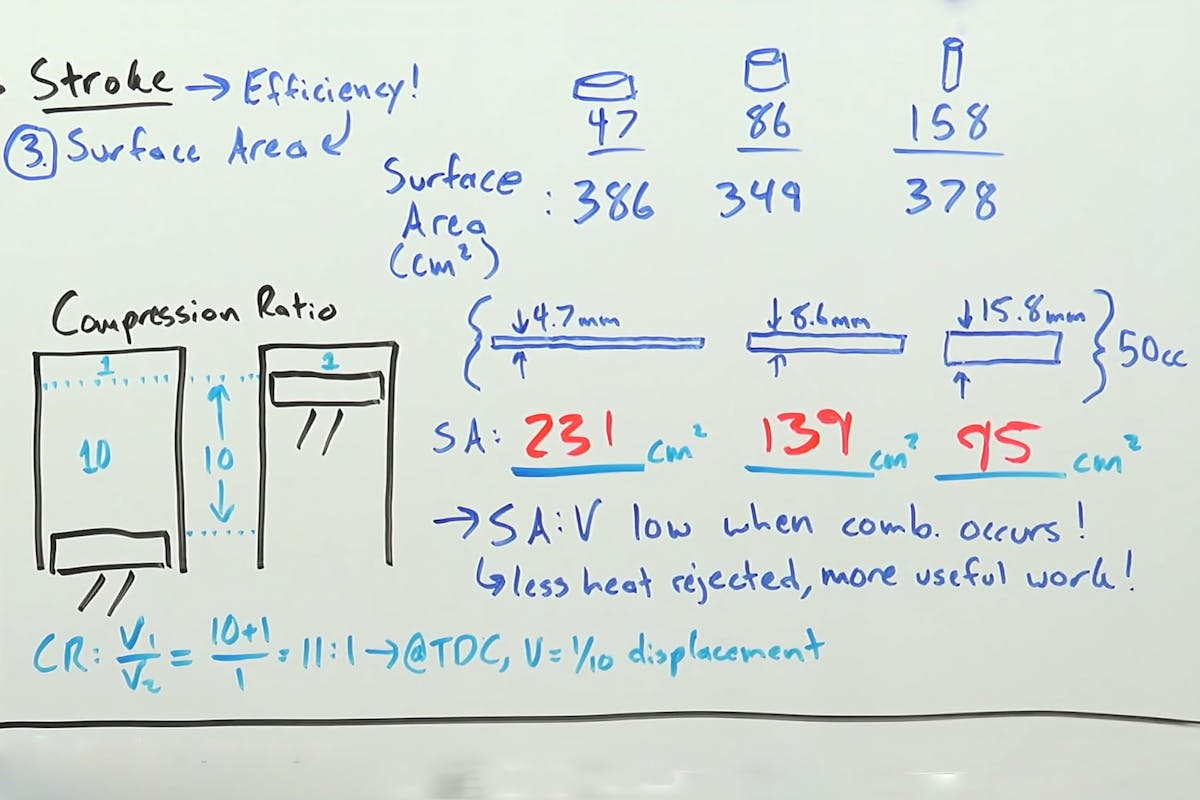 Stroke → Efficiency!
③ Surface Area
47 86 158
Surface Area (cm²) : 386 349 378
Compression Ratio
1
10
10
1
{ 4.7mm 8.6mm 15.8mm } 50cc
SA: 231 cm² 139 cm² 95 cm²
→ SA:V low when comb. occurs!
↳ less heat rejected, more useful work!
CR: V₁/V₂ = 10+1/1 = 11:1 → @TDC, V = 1/10 displacement